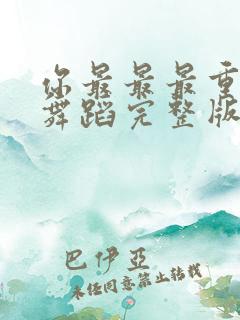 你最最最重
舞蹈完整版
巴伊亞
未经同意禁止转载